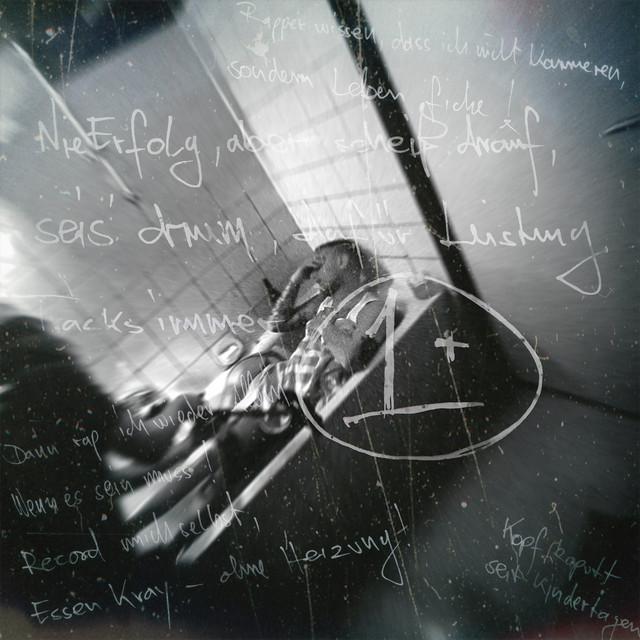 Rapper wissen, dass ich nicht kannieren,
sondern Leben ficke!
Nie Erfolg, aber scheiß drauf,
seis drum, dafür Leistung
Tracks immer
1+
Dann rap ich wieder
Wenn es sein muss!
Record mich selbst,
Essen Kray - ohne Heizung!
Kopf kaputt
seit Kindertagen